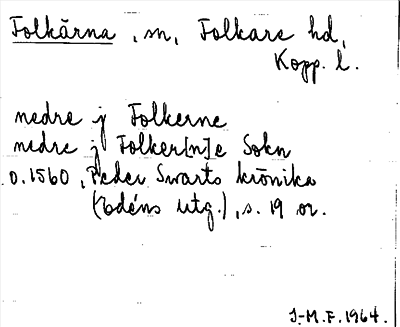 Folkärna, sn, Folkare hd,
Kopp. l.
nedre j Folkerne
nedre j Folker[n]e Sokn
o. 1560, Peder Swarts krönika
(Edéns utg.), s. 19 or.
I-M.F. 1964.